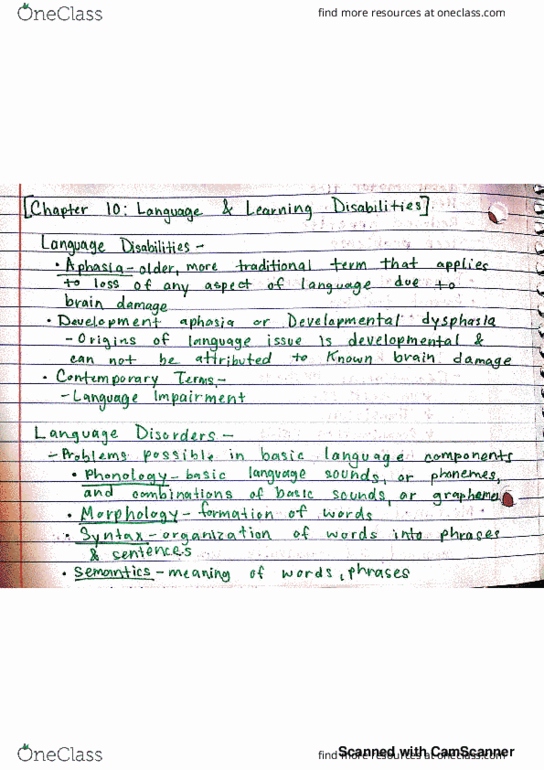 OneClass
find more resources at oneclass.com
[Chapter 10: Language & Learning Disabilities]
Language Disabilities -
• Aphasia - older, more traditional term that applies
to loss of any aspect of language due to
brain damage
• Development aphasia or Developmental dysphasia
- Origins of language issue is developmental &
can not be attributed to known brain damage
• Contemporary Terms -
- Language Impairment
Language Disorders -
- Problems possible in basic language components
• Phonology - basic language sounds, or phonemes,
and combinations of basic sounds, or graphemes
• Morphology - formation of words
• Syntax - organization of words into phrases
& sentences
• Semantics - meaning of words, phrases
OneClass
find more resources at oneclass.com
Scanned with CamScanner